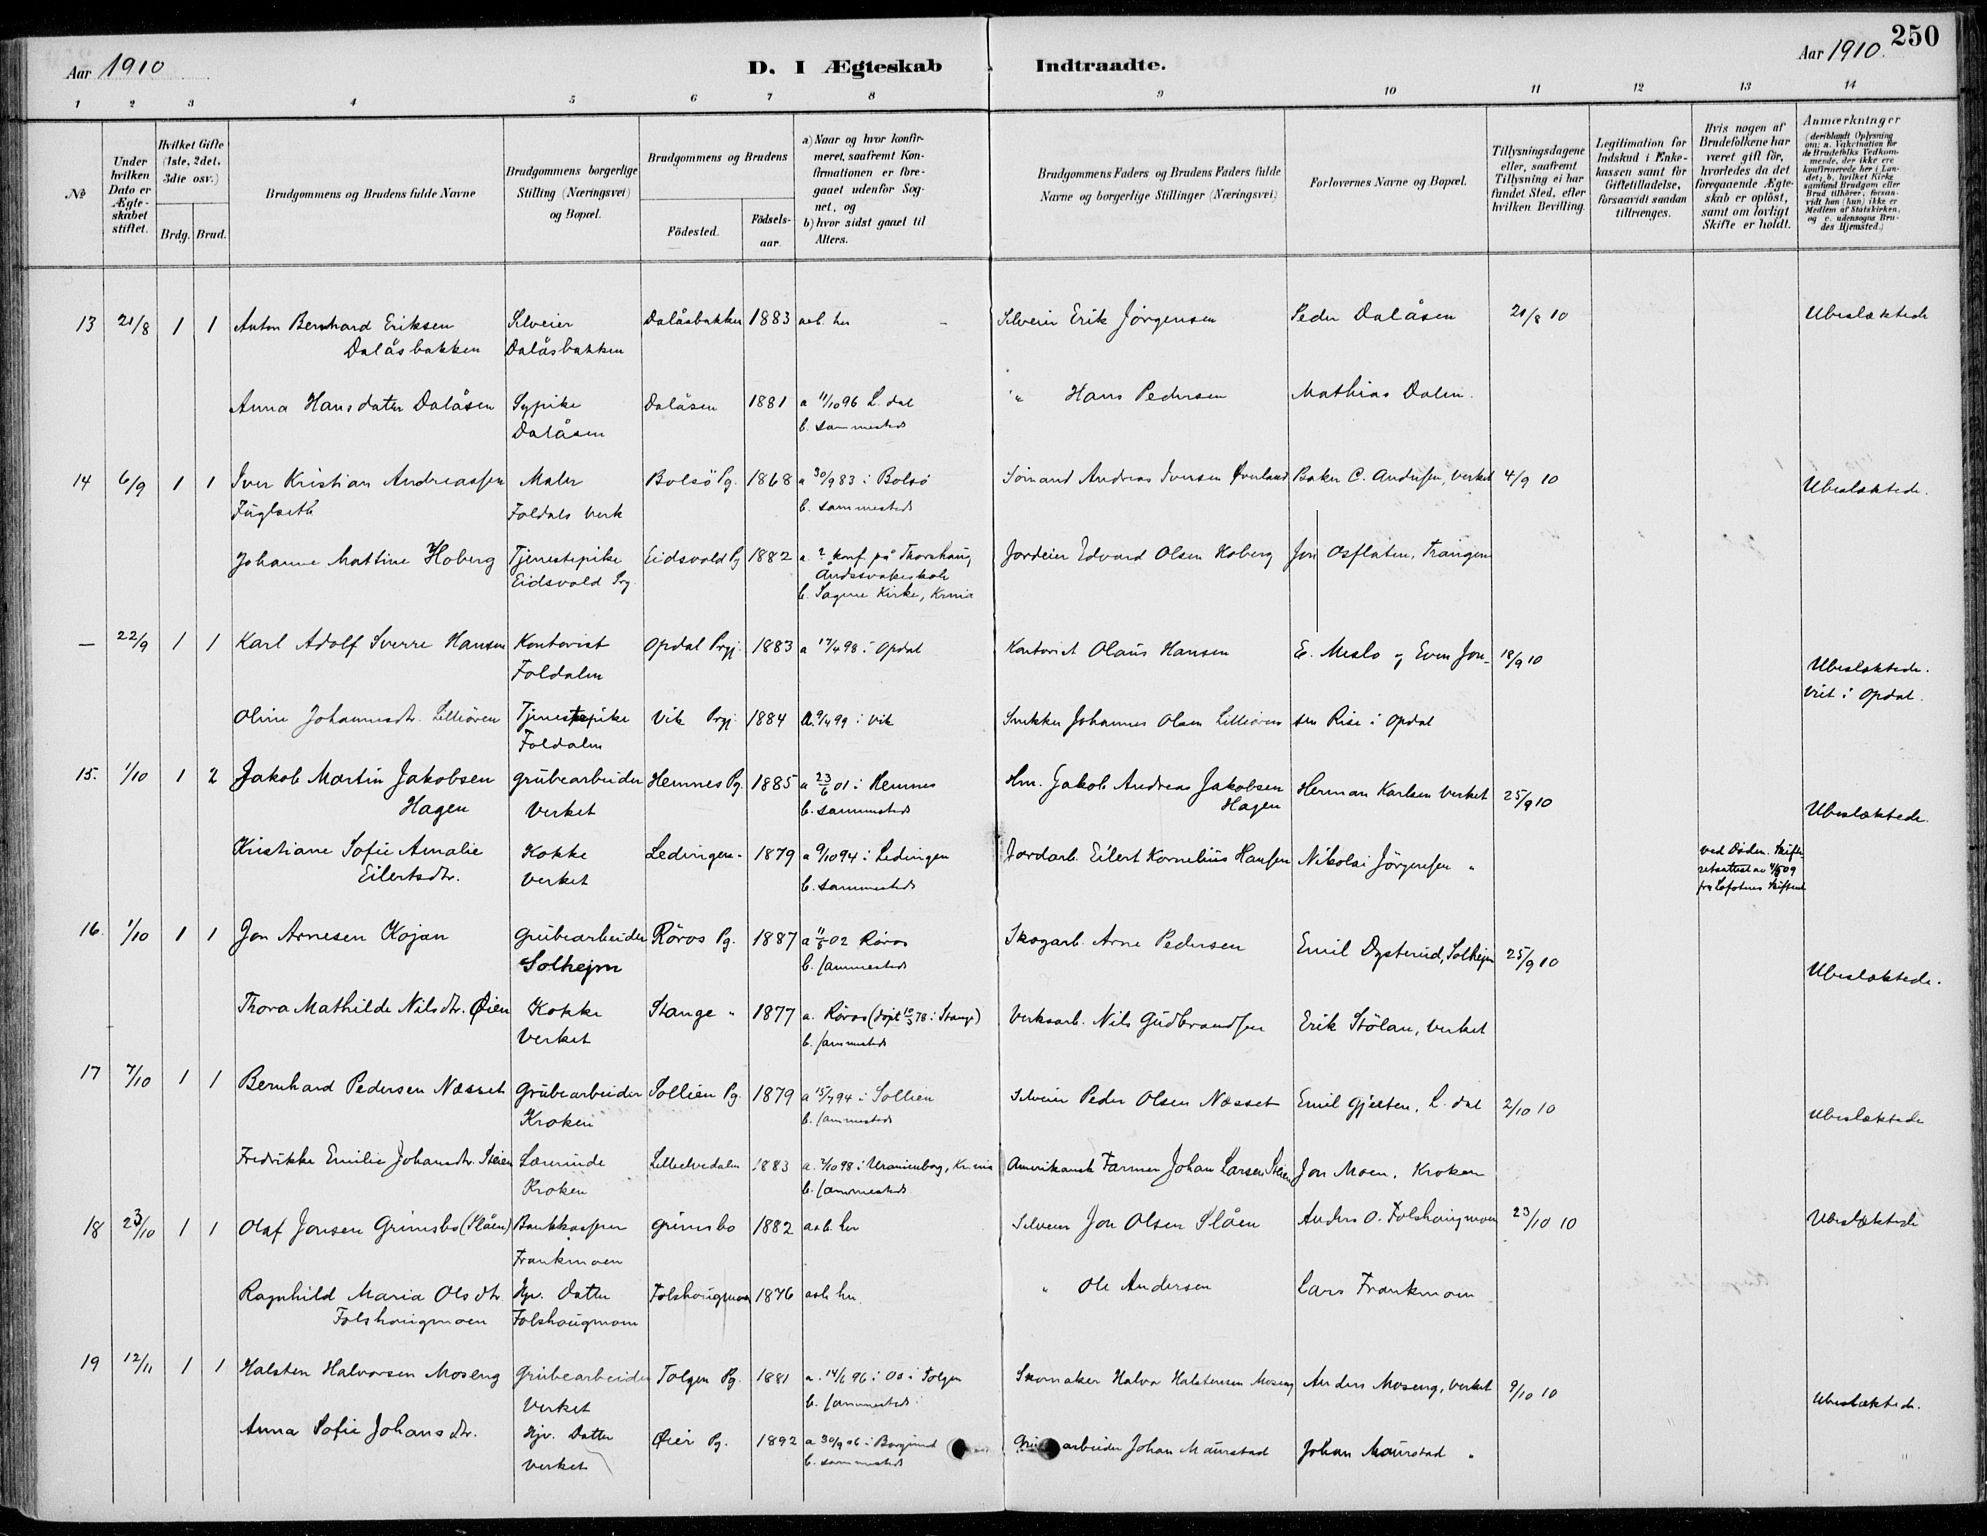 250
Aar 1910
D. I Ægteskab Indtraadte.
Aar 1910.
1 2 3 4 5 6 7 8 9 10 11 12 13 14
№
Under hvilken Dato er Ægteskabet stiftet.
Hvilket Gifte (1ste, 2det, 3die osv.)
Brdg. Brud.
Brudgommens og Brudens fulde Navne
Brudgommens borgerlige Stilling (Næringsvei) og Bopæl.
Brudgommens og Brudens
Födested.
Födselsaar.
a) Naar og hvor konfirmeret, saafremt Konfirmationen er foregaaet udenfor Sognet, og
b) hvor sidst gaaet til Alters.
Brudgommens Faders og Brudens Faders fulde Navne og borgerlige Stillinger (Næringsvei)
Forlovernes Navne og Bopæl.
Tillysningsdagene eller, saafremt Tillysning ei har fundet Sted, efter hvilken Bevilling.
Legitimation for Indskud i Enkekassen samt for Giftetilladelse, forsaavidt saadan tiltrænges.
Hvis nogen af Brudefolkene har været gift för, hvorledes da det foregaaende Ægteskab er oplöst, samt om lovligt Skifte er holdt.
Anmærkninger (deriblandt Oplysning om: a. Vakcination for de Brudefolks Vedkommende, der ikke ere konfirmerede her i Landet; b. hvilket Kirkesamfund Brudgom eller Brud tilhörer, forsaavidt han (hun) ikke er Medlem af Statskirken, og c. udensogns Brudes Hjemsted.)
13 21/8 1 1 Anton Bernhard Eriksen Selveier Dalåsbakken 1883 aab. her Selveier Erik Jörgensen Peder Dalåsen 21/8 10 Ubeslæktede
Dalåsbakken Dalåsbakken
Anna Hansdatter Dalåsen Sypike Dalåsen 1881 a 11/10 96 L. dal " Hans Pedersen Mathias Dalen.
Dalåsen b. sammesteds
14 6/9 1 1 Iver Kristian Andreassen Maler Bolsö Pg. 1868 a 30/9 83 i Bolsö Sömand Andreas Iversen Överland Baker C. Andersen, verket 4/9 10 Ubeslæktede.
Fuglseth Foldals Verk b. sammesteds
Johanne Mattine Hoberg Tjenestepike Eidsvold Pg 1882 a. ? konf på Thorshaug Jordeier Edvard Olsen Hoberg Jon Osflaten, Trangen
Eidsvold Prg. Åndssvakeskole
b. Sagene Kirke, Krnia
— 22/9 1 1 Karl Adolf Sverre Hansen Kontorist Opdal Prgj. 1883 a 17/4 98 i Opdal Kontorist Olaus Hansen E. Meslo og Even Jon- 18/9 10 Ubeslæktede.
Foldalen viet i Opdal.
Oline Johannesdtr. Lilleören Tjenestepike Vik Prgj. 1884 a. 9/4 99 i Vik Snikker Johannes Olsen Lilleören sen Rise i Opdal
Foldalen
15. 1/10 1 2 Jakob Martin Jakobsen Grubearbeider Hemnes Pg. 1885 a 23/6 01 i Hemnes Hm. Jakob Andreas Jakobsen Herman Karlsen Verket 25/9 10 Ubeslæktede.
Hagen Verket b. sammesteds Hagen
Kristiane Sofie Amalie Kokke Lödingen 1879 a 9/10 94 i Lödingen Jordarb. Eilert Kornelius Hansen Nikolai Jörgensen " ved Döden. Skifteretsattest av 4/5 09
Eilertsdtr. Verket b. sammesteds fra Lofotens
16. 1/10 1 1 Jon Arnesen Kojan Grubearbeider Röros Pg. 1887 a 11/5 02 Röros Skogarb. Arne Pedersen Emil Dysterud, Solhejm 25/9 10 Ubeslæktede.
Solhejm b. sammesteds
Thora Mathilde Nilsdtr. Öien Kokke Stange " 1877 a. Röros (döpt 10/3 78 i Stange) Verksarb. Nils Gudbrandsen Erik Stölan, Verket
Verket b. sammesteds
17 7/10 1 1 Bernhard Pedersen Næsset Grubearbeider Sollien Pg. 1879 a 15/7 94 i Sollien Selveier Peder Olsen Næsset Emil Gjelten, L. dal 2/10 10 Ubeslæktede
Kroken b. sammesteds
Fredrikke Emilie Johansdtr. Steien Lærerinde Lilleelvedalen 1883 a. 2/10 98 i Uranienborg, Kr.nia Amerikansk Farmer Johan Larsen Steien Jon Moen, Kroken
Kroken b. sammesteds
18 23/10 1 1 Olaf Jonsen Grimsbo (Slåen) Bankkasserer Grimsbo 1882 aab. her Selveier Jon Olsen Slåen Anders O. Folshaugmoen 23/10 10 Ubeslæktede
Frankmoen
Ragnhild Maria Olsdtr. Hjv. Datter Folshaugmoen 1876 aab her. " Ole Andersen Lars Frankmoen
Folshaugmoen Folshaugmoen
19 12/11 1 1 Halsten Halvorsen Moseng Grubearbeider Tolgen Pg. 1881 a. 14/6 96 i Os i Tolgen Skomaker Halvor Halstensen Moseng Anders Moseng, Verket 9/10 10 Ubeslæktede.
Verket b. sammesteds
Anna Sofie Johansdtr. Hjv. Datter Öier Pg. 1892 a 30/9 06 i Borgund arbeider Johan Maurstad Johan Maurstad "
Verket b. sammesteds